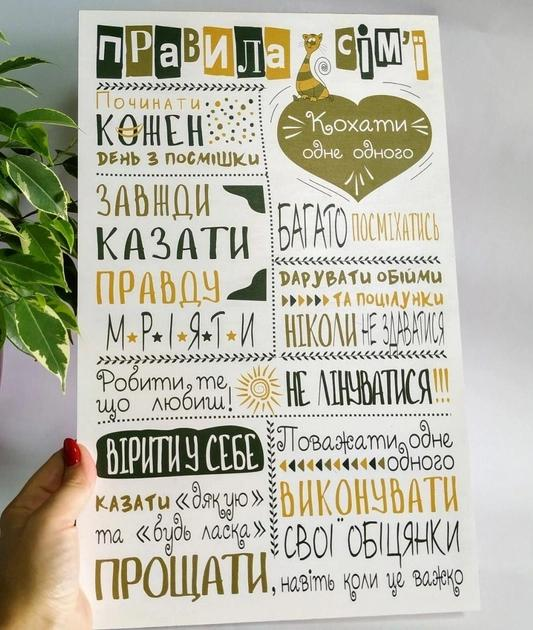 правила сім'ї
Починати
КОЖЕН
ДЕНЬ З ПОСМІШКИ
Кохати
одне одного
ЗАВЖДИ
КАЗАТИ
ПРАВДУ
БАГАТО ПОСМІХАТИСЬ
ДАРУВАТИ ОБІЙМИ
ТА ПОЦІЛУНКИ
М·Р·І·Я·Т·И
НІКОЛИ НЕ ЗДАВАТИСЯ
Робити те,
що любиш!
НЕ ЛІНУВАТИСЯ!!!
ВІРИТИ У СЕБЕ
Поважати одне
одного
КАЗАТИ «дякую»
та «будь ласка»
ВИКОНУВАТИ
СВОЇ ОБІЦЯНКИ
ПРОЩАТИ, навіть коли це важко